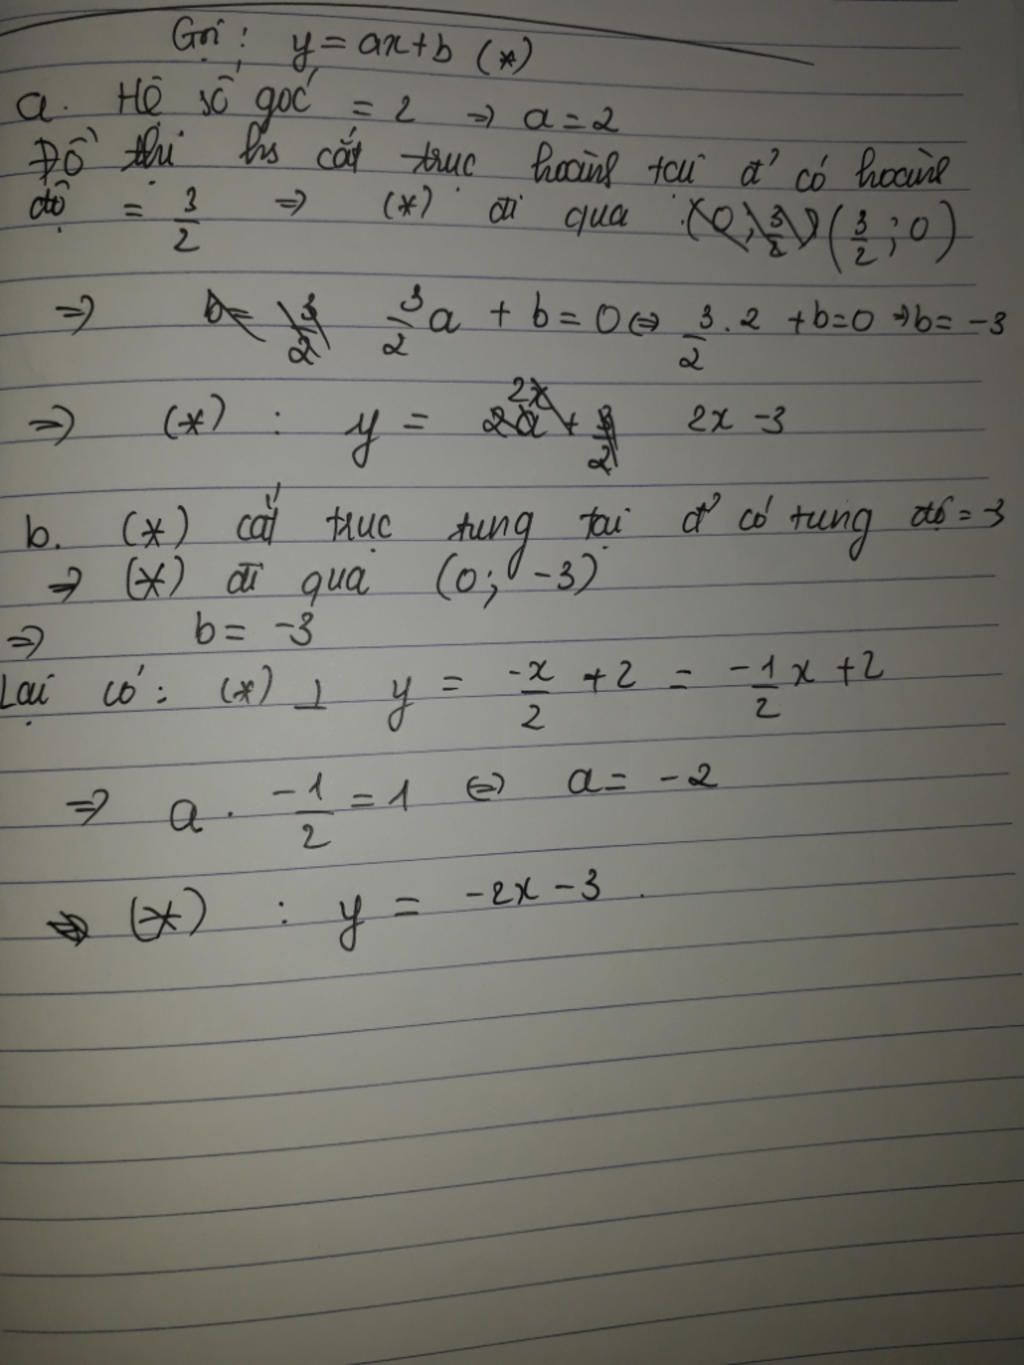 Gọi : y = ax + b (*)
a. Hệ số góc = 2 => a = 2
Đồ thị hs cắt trục hoành tại đ' có hoành
độ = 3/2 => (*) đi qua (3/2 ; 0)
=> 3/2 a + b = 0 <=> 3/2 . 2 + b = 0 => b = -3
=> (*) : y = 2x - 3
b. (*) cắt trục tung tại đ' có tung độ = -3
=> (*) đi qua (0; -3)
=> b = -3
Lại có : (*) ⊥ y = -x/2 + 2 = -1/2 x + 2
=> a . -1/2 = 1 <=> a = -2
=> (*) : y = -2x - 3.